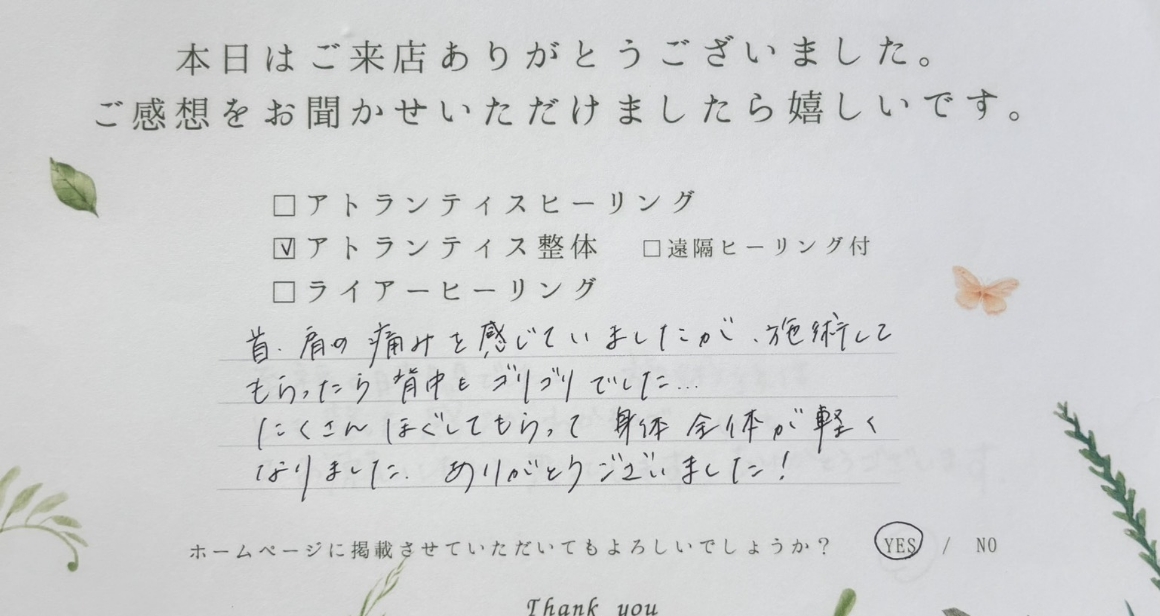 本日はご来店ありがとうございました。
ご感想をお聞かせいただけましたら嬉しいです。
□アトランティスヒーリング
☑アトランティス整体 □遠隔ヒーリング付
□ライアーヒーリング
首・肩の痛みを感じていましたが、施術して
もらったら背中もゴリゴリでした…
たくさんほぐしてもらって身体全体が軽く
なりました. ありがとうございました!
ホームページに掲載させていただいてもよろしいでしょうか? YES / NO
Thank you